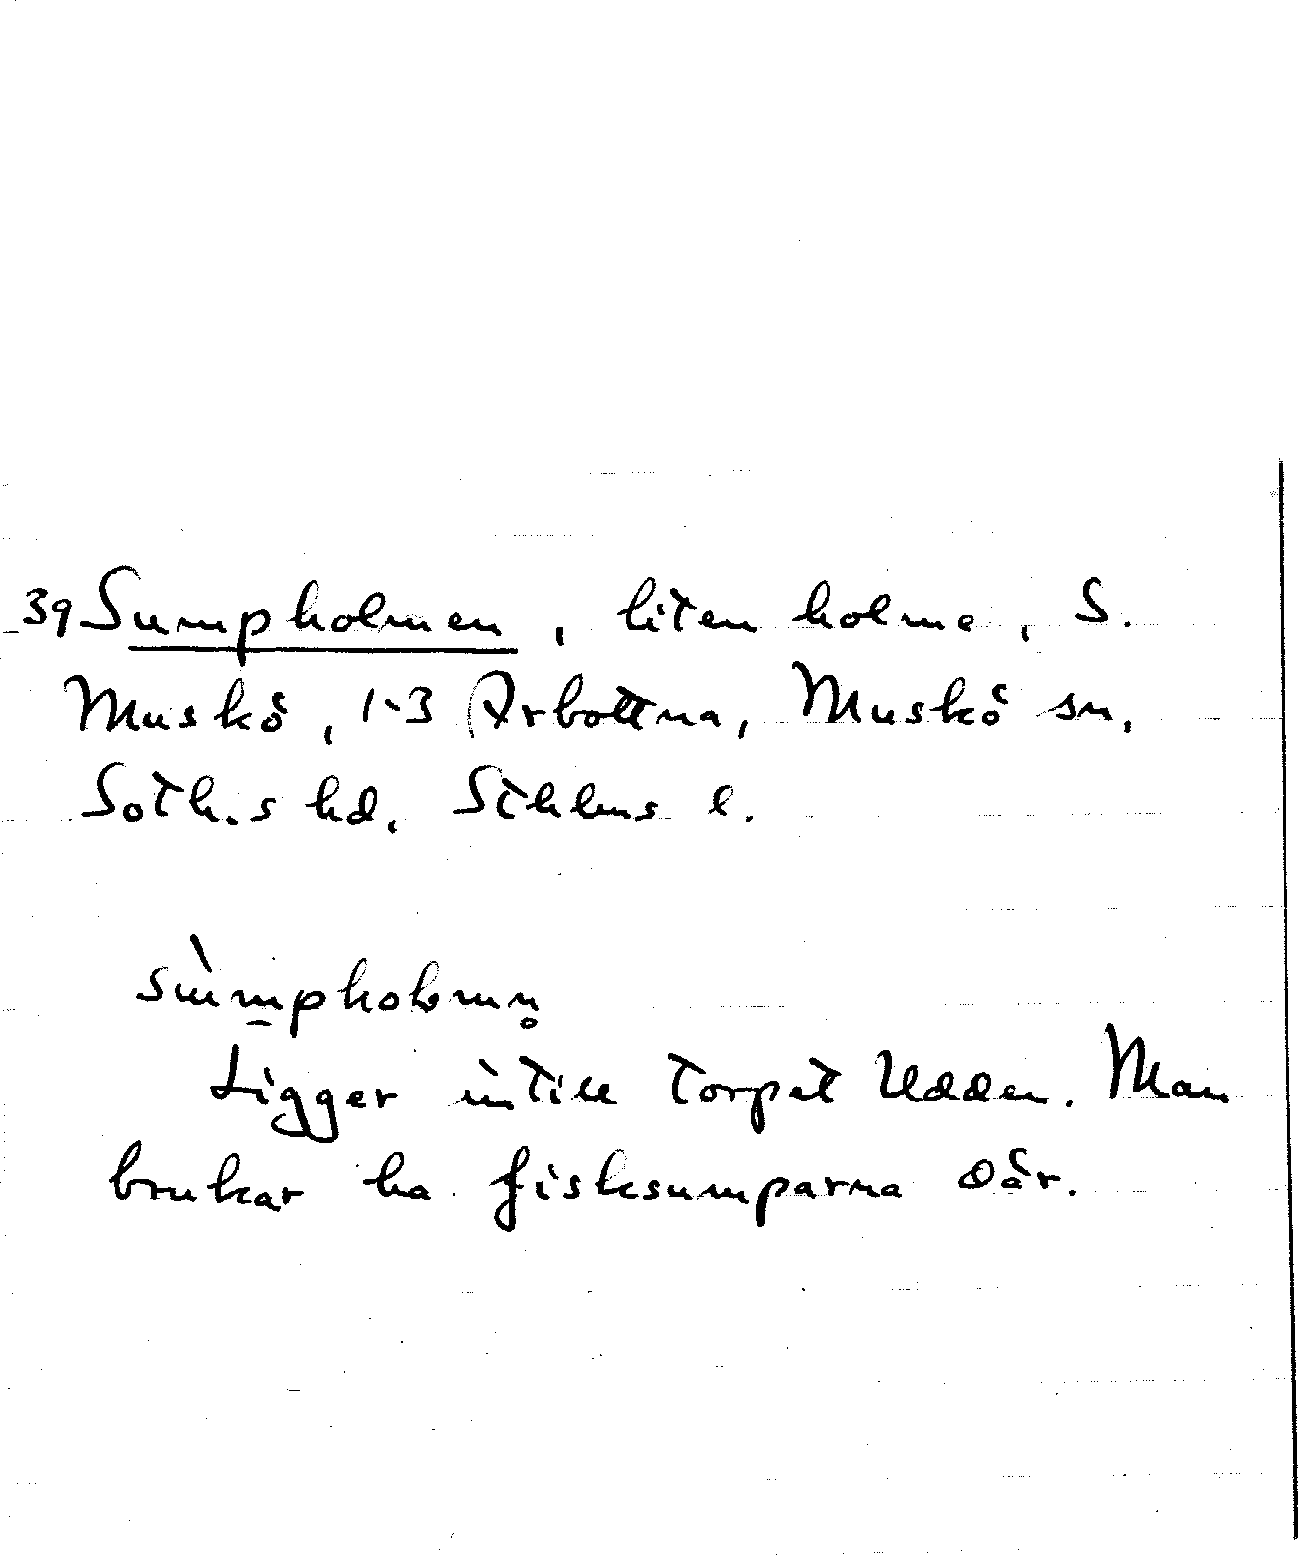 39 Sumpholmen, liten holme, S.
Muskö, 1-3 Arbottna, Muskö sn,
Soth.s hd. Sthlms l.
sùm̠pholmn̥
Ligger intill torpet Udden. Man
brukar ha fisksumparna där.